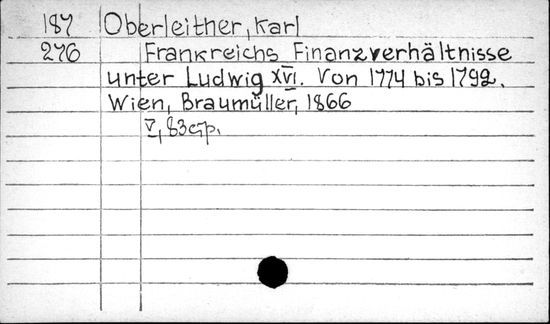 187 Oberleither, Karl
276 Frankreichs Finanzverhältnisse
unter Ludwig XVI. Von 1774 bis 1792.
Wien, Braumüller, 1866
V, 83 стр.